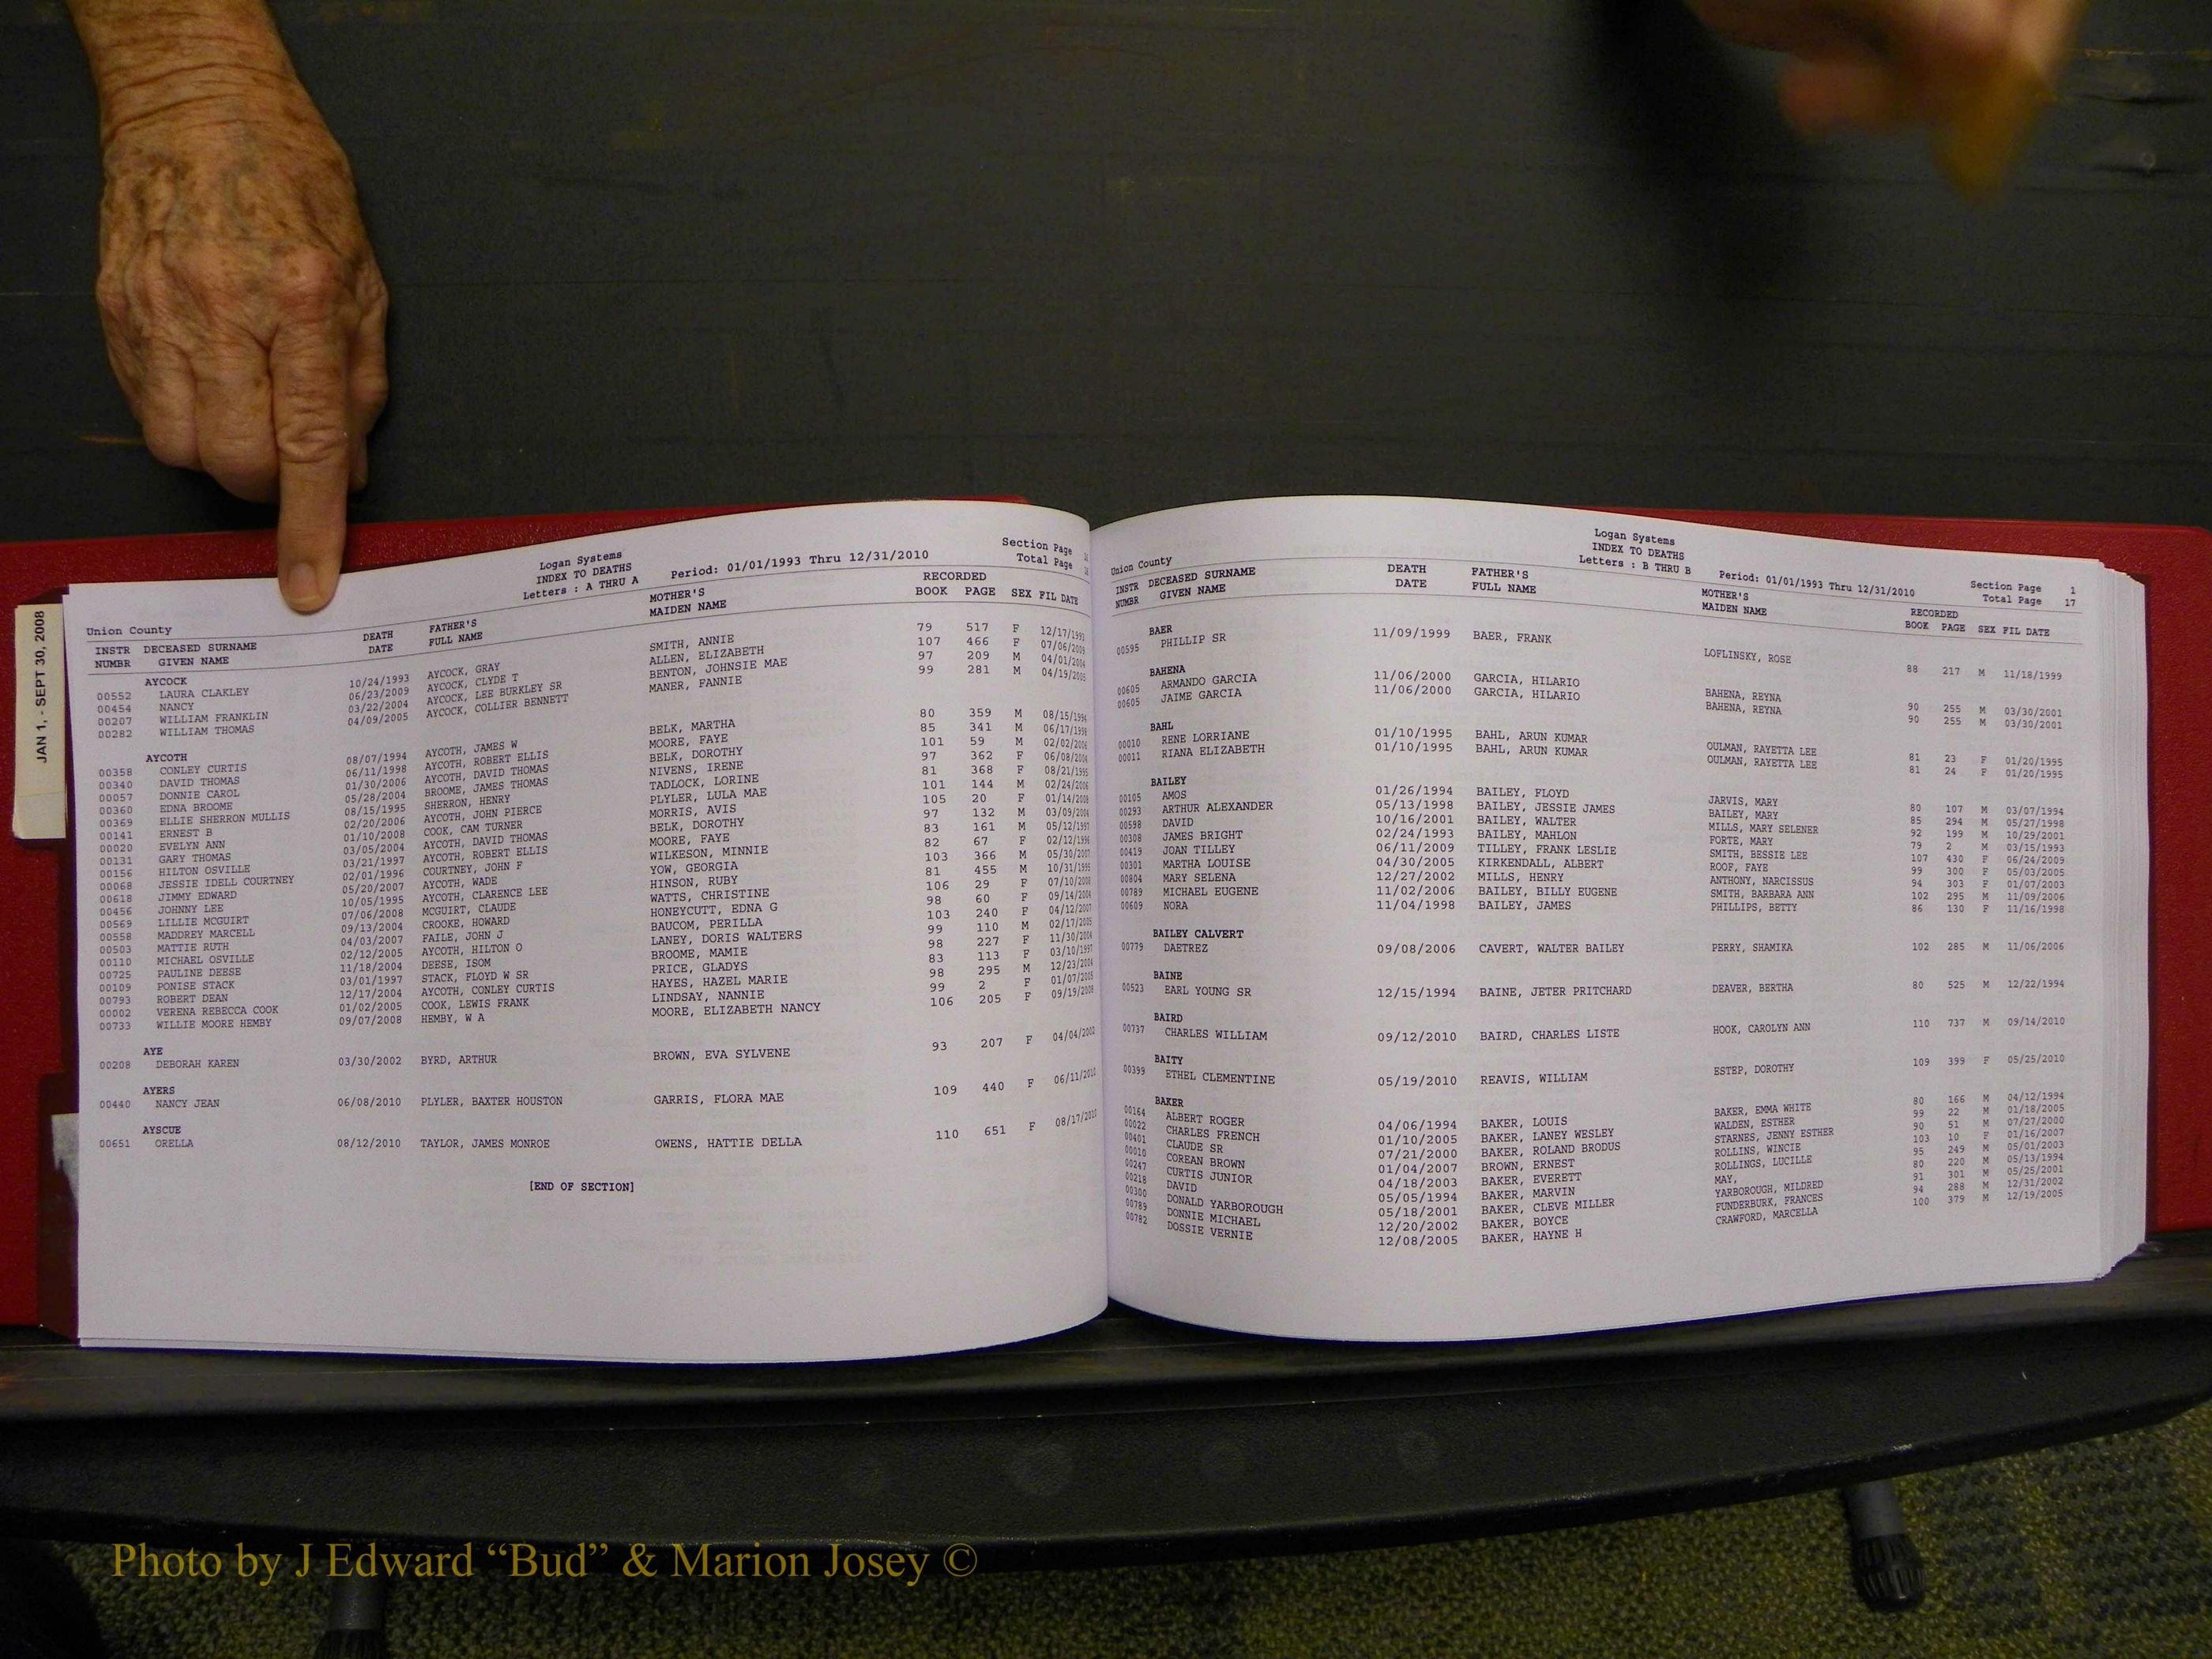 JAN 1, - SEPT 30, 2008
Logan Systems
INDEX TO DEATHS
Letters : A THRU A
Period: 01/01/1993 Thru 12/31/2010
Section Page
Total Page
Union County
INSTR DECEASED SURNAME DEATH FATHER'S MOTHER'S RECORDED
NUMBR GIVEN NAME DATE FULL NAME MAIDEN NAME BOOK PAGE SEX FIL DATE
AYCOCK
00552 LAURA CLAKLEY 10/24/1993 AYCOCK, GRAY SMITH, ANNIE 79 517 F 12/17/1993
00454 NANCY 06/23/2009 AYCOCK, CLYDE T ALLEN, ELIZABETH 107 466 F 07/06/2009
00207 WILLIAM FRANKLIN 03/22/2004 AYCOCK, LEE BURKLEY SR BENTON, JOHNSIE MAE 97 209 M 04/01/2004
00282 WILLIAM THOMAS 04/09/2005 AYCOCK, COLLIER BENNETT MANER, FANNIE 99 281 M 04/19/2005
AYCOTH
00358 CONLEY CURTIS 08/07/1994 AYCOTH, JAMES W BELK, MARTHA 80 359 M 08/15/1994
00340 DAVID THOMAS 06/11/1998 AYCOTH, ROBERT ELLIS MOORE, FAYE 85 341 M 06/17/1998
00057 DONNIE CAROL 01/30/2006 AYCOTH, DAVID THOMAS BELK, DOROTHY 101 59 M 02/02/2006
00360 EDNA BROOME 05/28/2004 BROOME, JAMES THOMAS NIVENS, IRENE 97 362 F 06/08/2004
00369 ELLIE SHERRON MULLIS 08/15/1995 SHERRON, HENRY TADLOCK, LORINE 81 368 F 08/21/1995
00141 ERNEST B 02/20/2006 AYCOTH, JOHN PIERCE PLYLER, LULA MAE 101 144 M 02/24/2006
00020 EVELYN ANN 01/10/2008 COOK, CAM TURNER MORRIS, AVIS 105 20 F 01/14/2008
00131 GARY THOMAS 03/05/2004 AYCOTH, DAVID THOMAS BELK, DOROTHY 97 132 M 03/09/2004
00156 HILTON OSVILLE 03/21/1997 AYCOTH, ROBERT ELLIS MOORE, FAYE 83 161 M 05/12/1997
00068 JESSIE IDELL COURTNEY 02/01/1996 COURTNEY, JOHN F WILKESON, MINNIE 82 67 F 02/12/1996
00618 JIMMY EDWARD 05/20/2007 AYCOTH, WADE YOW, GEORGIA 103 366 M 05/30/2007
00456 JOHNNY LEE 10/05/1995 AYCOTH, CLARENCE LEE HINSON, RUBY 81 455 M 10/31/1995
00569 LILLIE MCGUIRT 07/06/2008 MCGUIRT, CLAUDE WATTS, CHRISTINE 106 29 F 07/10/2008
00558 MADDREY MARCELL 09/13/2004 CROOKE, HOWARD HONEYCUTT, EDNA G 98 60 F 09/14/2004
00503 MATTIE RUTH 04/03/2007 FAILE, JOHN J BAUCOM, PERILLA 103 240 F 04/12/2007
00110 MICHAEL OSVILLE 02/12/2005 AYCOTH, HILTON O LANEY, DORIS WALTERS 99 110 M 02/17/2005
00725 PAULINE DEESE 11/18/2004 DEESE, ISOM BROOME, MAMIE 98 227 F 11/30/2004
00109 PONISE STACK 03/01/1997 STACK, FLOYD W SR PRICE, GLADYS 83 113 F 03/10/1997
00793 ROBERT DEAN 12/17/2004 AYCOTH, CONLEY CURTIS HAYES, HAZEL MARIE 98 295 M 12/23/2004
00002 VERENA REBECCA COOK 01/02/2005 COOK, LEWIS FRANK LINDSAY, NANNIE 99 2 F 01/07/2005
00733 WILLIE MOORE HEMBY 09/07/2008 HEMBY, W A MOORE, ELIZABETH NANCY 106 205 F 09/19/2008
AYE
00208 DEBORAH KAREN 03/30/2002 BYRD, ARTHUR BROWN, EVA SYLVENE 93 207 F 04/04/2002
AYERS
00440 NANCY JEAN 06/08/2010 PLYLER, BAXTER HOUSTON GARRIS, FLORA MAE 109 440 F 06/11/2010
AYSCUE
00651 ORELLA 08/12/2010 TAYLOR, JAMES MONROE OWENS, HATTIE DELLA 110 651 F 08/17/2010
[END OF SECTION]
Logan Systems
INDEX TO DEATHS
Letters : B THRU B
Period: 01/01/1993 Thru 12/31/2010
Section Page 1
Total Page 17
Union County
INSTR DECEASED SURNAME DEATH FATHER'S MOTHER'S RECORDED
NUMBR GIVEN NAME DATE FULL NAME MAIDEN NAME BOOK PAGE SEX FIL DATE
BAER
00595 PHILLIP SR 11/09/1999 BAER, FRANK LOFLINSKY, ROSE 88 217 M 11/18/1999
BAHENA
00605 ARMANDO GARCIA 11/06/2000 GARCIA, HILARIO BAHENA, REYNA 90 255 M 03/30/2001
00605 JAIME GARCIA 11/06/2000 GARCIA, HILARIO BAHENA, REYNA 90 255 M 03/30/2001
BAHL
00010 RENE LORRIANE 01/10/1995 BAHL, ARUN KUMAR OULMAN, RAYETTA LEE 81 23 F 01/20/1995
00011 RIANA ELIZABETH 01/10/1995 BAHL, ARUN KUMAR OULMAN, RAYETTA LEE 81 24 F 01/20/1995
BAILEY
00105 AMOS 01/26/1994 BAILEY, FLOYD JARVIS, MARY 80 107 M 03/07/1994
00293 ARTHUR ALEXANDER 05/13/1998 BAILEY, JESSIE JAMES BAILEY, MARY 85 294 M 05/27/1998
00598 DAVID 10/16/2001 BAILEY, WALTER MILLS, MARY SELENER 92 199 M 10/29/2001
00308 JAMES BRIGHT 02/24/1993 BAILEY, MAHLON FORTE, MARY 79 2 M 03/15/1993
00419 JOAN TILLEY 06/11/2009 TILLEY, FRANK LESLIE SMITH, BESSIE LEE 107 430 F 06/24/2009
00301 MARTHA LOUISE 04/30/2005 KIRKENDALL, ALBERT ROOF, FAYE 99 300 F 05/03/2005
00804 MARY SELENA 12/27/2002 MILLS, HENRY ANTHONY, NARCISSUS 94 303 F 01/07/2003
00789 MICHAEL EUGENE 11/02/2006 BAILEY, BILLY EUGENE SMITH, BARBARA ANN 102 295 M 11/09/2006
00609 NORA 11/04/1998 BAILEY, JAMES PHILLIPS, BETTY 86 130 F 11/16/1998
BAILEY CALVERT
00779 DAETREZ 09/08/2006 CAVERT, WALTER BAILEY PERRY, SHAMIKA 102 285 M 11/06/2006
BAINE
00523 EARL YOUNG SR 12/15/1994 BAINE, JETER PRITCHARD DEAVER, BERTHA 80 525 M 12/22/1994
BAIRD
00737 CHARLES WILLIAM 09/12/2010 BAIRD, CHARLES LISTE HOOK, CAROLYN ANN 110 737 M 09/14/2010
BAITY
00399 ETHEL CLEMENTINE 05/19/2010 REAVIS, WILLIAM ESTEP, DOROTHY 109 399 F 05/25/2010
BAKER
00164 ALBERT ROGER 04/06/1994 BAKER, LOUIS BAKER, EMMA WHITE 80 166 M 04/12/1994
00022 CHARLES FRENCH 01/10/2005 BAKER, LANEY WESLEY WALDEN, ESTHER 99 22 M 01/18/2005
00401 CLAUDE SR 07/21/2000 BAKER, ROLAND BRODUS STARNES, JENNY ESTHER 90 51 M 07/27/2000
00010 COREAN BROWN 01/04/2007 BROWN, ERNEST ROLLINS, WINCIE 103 10 F 01/16/2007
00247 CURTIS JUNIOR 04/18/2003 BAKER, EVERETT ROLLINGS, LUCILLE 95 249 M 05/01/2003
00218 DAVID 05/05/1994 BAKER, MARVIN MAY, 80 220 M 05/13/1994
00300 DONALD YARBOROUGH 05/18/2001 BAKER, CLEVE MILLER YARBOROUGH, MILDRED 91 301 M 05/25/2001
00789 DONNIE MICHAEL 12/20/2002 BAKER, BOYCE FUNDERBURK, FRANCES 94 288 M 12/31/2002
00782 DOSSIE VERNIE 12/08/2005 BAKER, HAYNE H CRAWFORD, MARCELLA 100 379 M 12/19/2005
Photo by J Edward “Bud” & Marion Josey ©